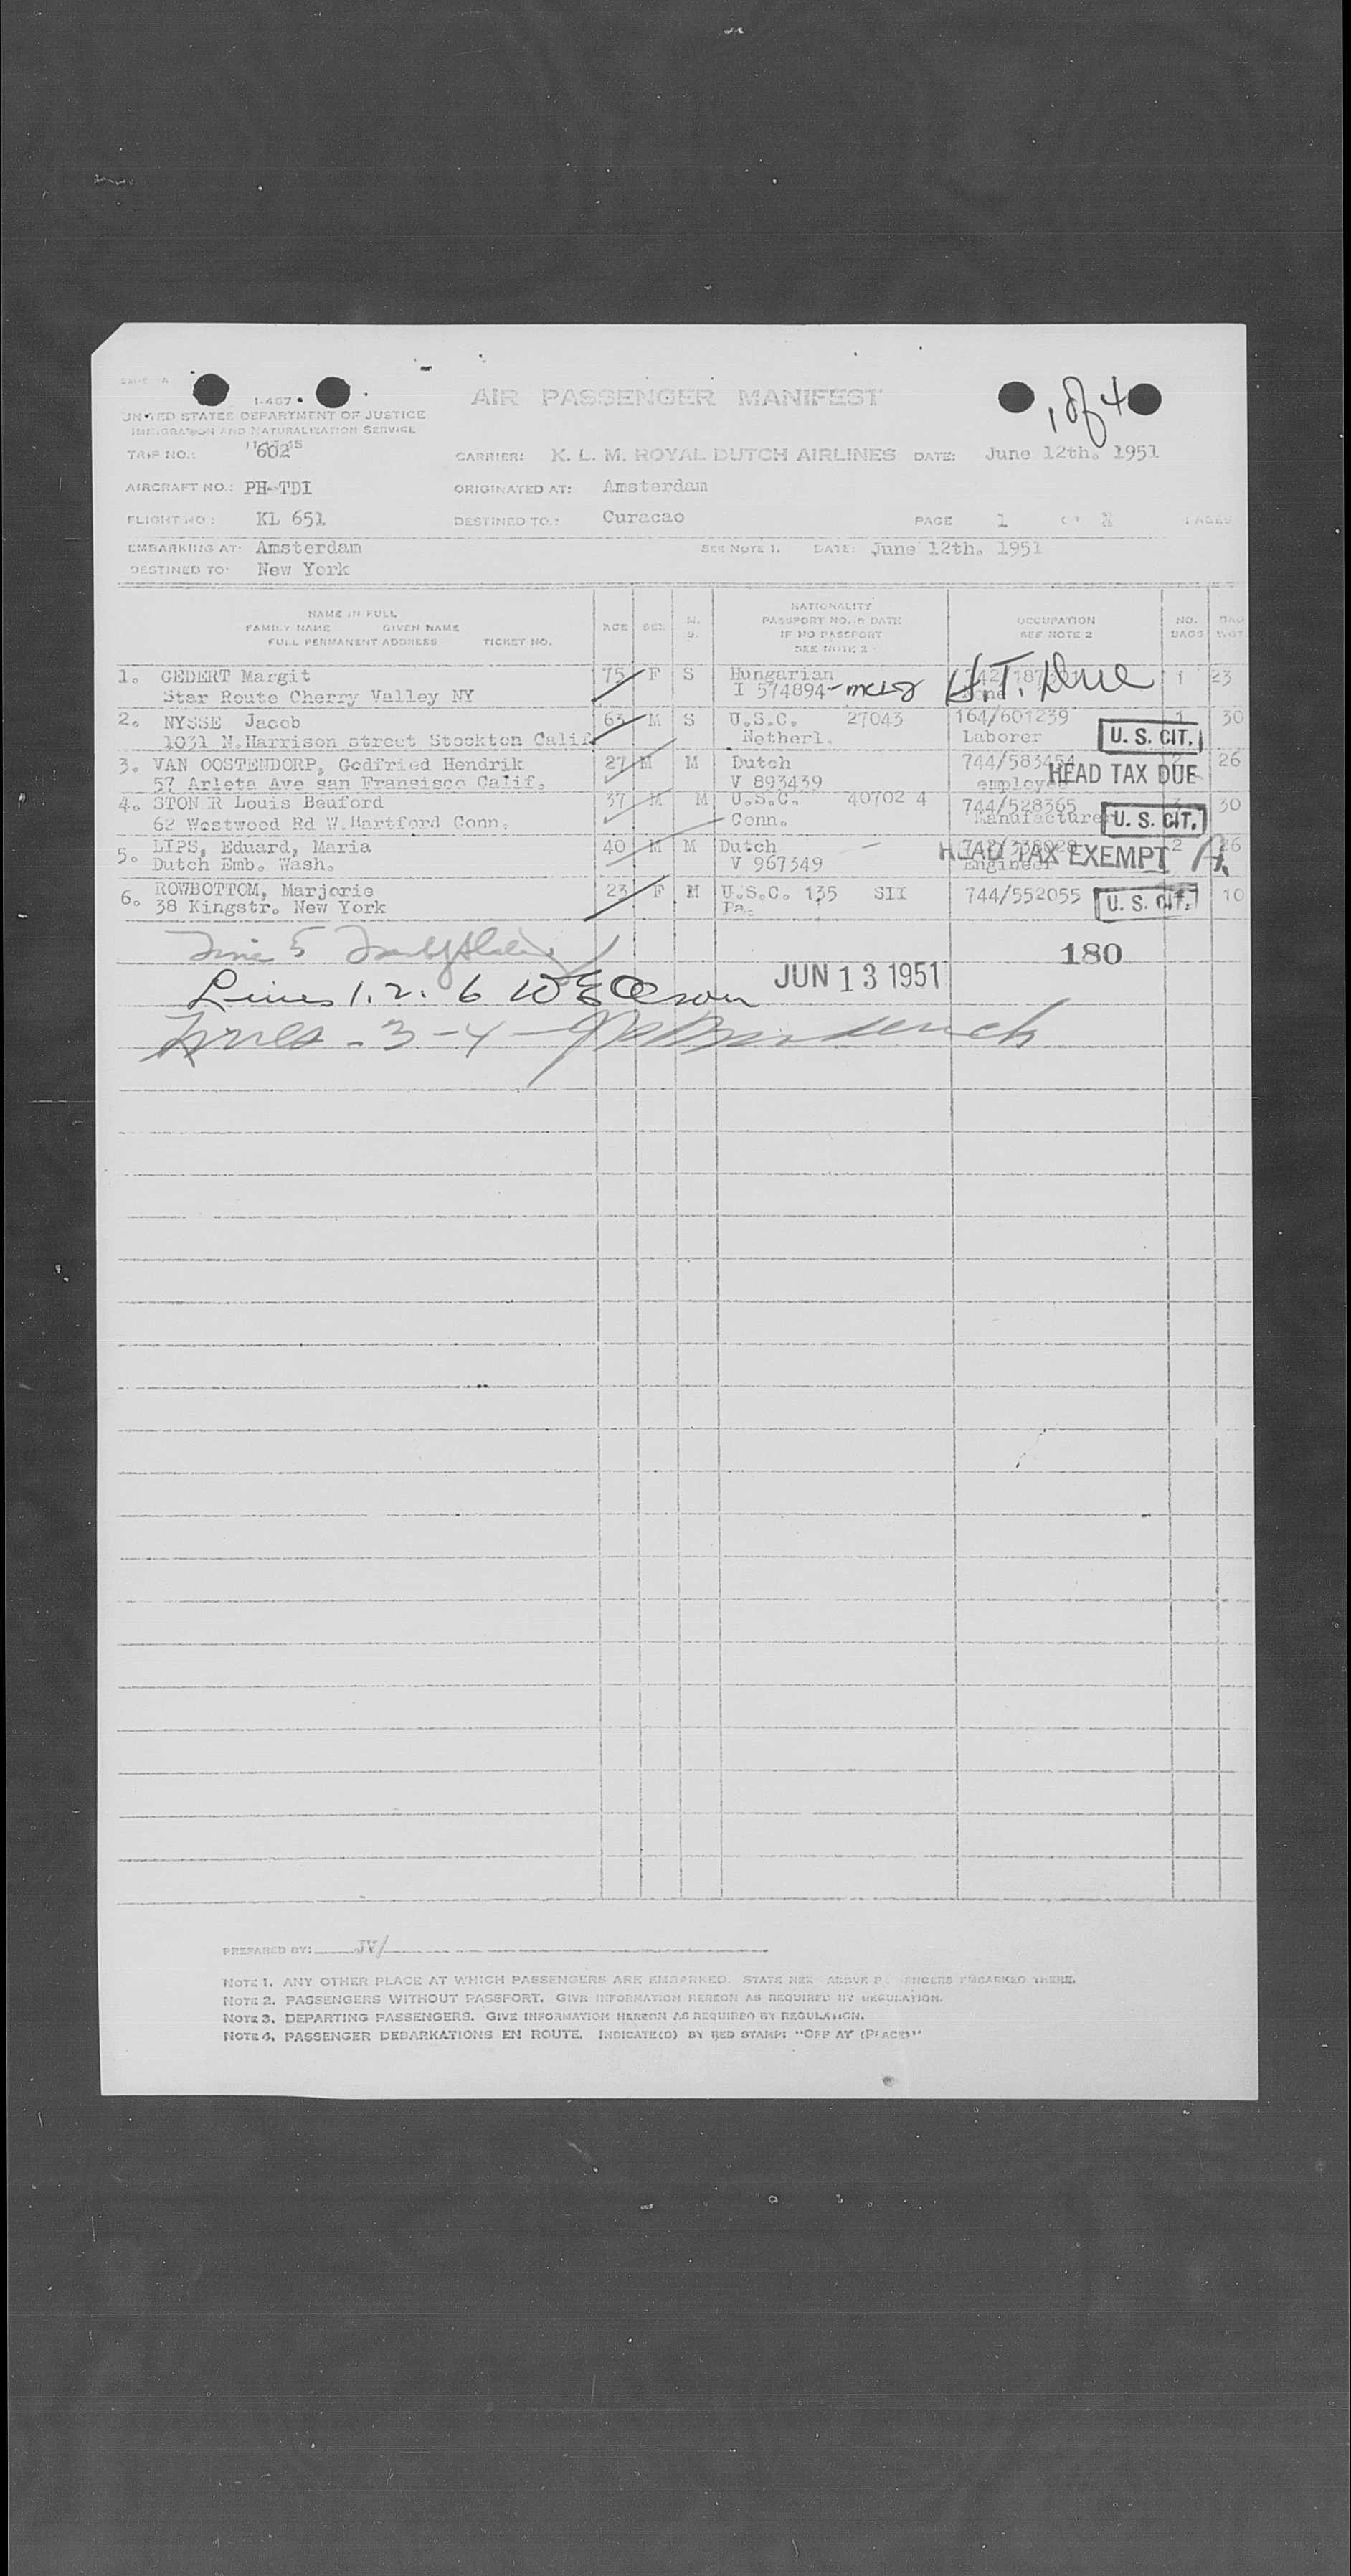 I-467
AIR PASSENGER MANIFEST
1 of 4
UNITED STATES DEPARTMENT OF JUSTICE
IMMIGRATION AND NATURALIZATION SERVICE
TRIP NO.: 602 CARRIER: K. L. M. ROYAL DUTCH AIRLINES DATE: June 12th. 1951
AIRCRAFT NO.: PH-TDI ORIGINATED AT: Amsterdam
FLIGHT NO.: KL 651 DESTINED TO.: Curacao PAGE 1 OF PAGES
EMBARKING AT: Amsterdam SEE NOTE 1. DATE: June 12th. 1951
DESTINED TO: New York
NAME IN FULL
FAMILY NAME GIVEN NAME
FULL PERMANENT ADDRESS TICKET NO.
AGE SEX M. S.
NATIONALITY
PASSPORT NO. & DATE
IF NO PASSPORT
SEE NOTE 2
OCCUPATION
SEE NOTE 2
NO. BAGS
BAG WGT.
1. GEDERT Margit 75 F S Hungarian 1 23
Star Route Cherry Valley NY I 574894 H.T. Due
2. NYSSE Jacob 63 M S U.S.C. 27043 164/601239 1 30
1031 N.Harrison street Stockton Calif Netherl. Laborer U. S. CIT.
3. VAN OOSTENDORP, Godfried Hendrik 27 M M Dutch 744/583454 2 26
57 Arleta Ave san Fransisco Calif. V 893439 employee HEAD TAX DUE
4. STON R Louis Beuford 37 M M U.S.C. 40702 4 744/528365 3 30
62 Westwood Rd W.Hartford Conn. Conn. Manufacturer U. S. CIT.
5. LIPS, Eduard, Maria 40 M M Dutch 2 26
Dutch Emb. Wash. V 967349 Engineer HEAD TAX EXEMPT
6. ROWBOTTOM, Marjorie 23 F M U.S.C. 135 SII 744/552055 10
38 Kingstr. New York Pa. U. S. CIT.
Line 5
180
JUN 13 1951
Lines 1. 2. 6
Lines - 3 - 4 -
PREPARED BY:
NOTE 1. ANY OTHER PLACE AT WHICH PASSENGERS ARE EMBARKED. EMBARKED THERE.
NOTE 2. PASSENGERS WITHOUT PASSPORT. GIVE INFORMATION HEREON AS REQUIRED BY REGULATION.
NOTE 3. DEPARTING PASSENGERS. GIVE INFORMATION HEREON AS REQUIRED BY REGULATION.
NOTE 4. PASSENGER DEBARKATIONS EN ROUTE. INDICATE(D) BY RED STAMP: "OFF AT (PLACE)"